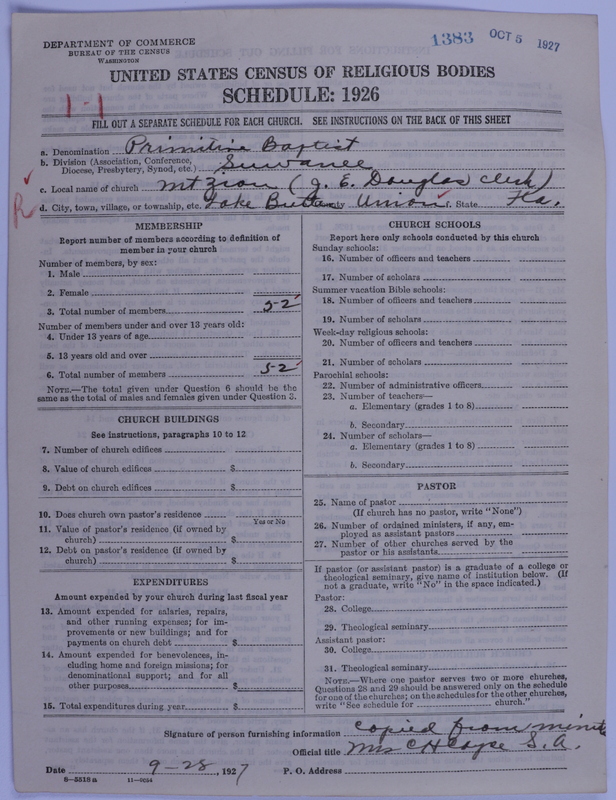 DEPARTMENT OF COMMERCE
BUREAU OF THE CENSUS
WASHINGTON
1383 OCT 5 1927
UNITED STATES CENSUS OF RELIGIOUS BODIES
SCHEDULE: 1926
1-1
FILL OUT A SEPARATE SCHEDULE FOR EACH CHURCH. SEE INSTRUCTIONS ON THE BACK OF THIS SHEET
a. Denomination Primitive Baptist
b. Division (Association, Conference, Diocese, Presbytery, Synod, etc.) Suwanee
c. Local name of church Mt Zion (J. E. Douglas clerk)
R
d. City, town, village, or township, etc. Lake Butler County Union f. State Fla.
MEMBERSHIP
Report number of members according to definition of
member in your church
Number of members, by sex:
1. Male
2. Female
3. Total number of members 52
Number of members under and over 13 years old:
4. Under 13 years of age
5. 13 years old and over
6. Total number of members 52
NOTE.—The total given under Question 6 should be the
same as the total of males and females given under Question 3.
CHURCH BUILDINGS
See instructions, paragraphs 10 to 12
7. Number of church edifices
8. Value of church edifices $
9. Debt on church edifices $
10. Does church own pastor's residence
Yes or No
11. Value of pastor's residence (if owned by
church) $
12. Debt on pastor's residence (if owned by
church) $
EXPENDITURES
Amount expended by your church during last fiscal year
13. Amount expended for salaries, repairs,
and other running expenses; for im-
provements or new buildings; and for
payments on church debt $
14. Amount expended for benevolences, in-
cluding home and foreign missions; for
denominational support; and for all
other purposes $
15. Total expenditures during year $
CHURCH SCHOOLS
Report here only schools conducted by this church
Sunday schools:
16. Number of officers and teachers
17. Number of scholars
Summer vacation Bible schools:
18. Number of officers and teachers
19. Number of scholars
Week-day religious schools:
20. Number of officers and teachers
21. Number of scholars
Parochial schools:
22. Number of administrative officers
23. Number of teachers—
a. Elementary (grades 1 to 8)
b. Secondary
24. Number of scholars—
a. Elementary (grades 1 to 8)
b. Secondary
PASTOR
25. Name of pastor
(If church has no pastor, write "None")
26. Number of ordained ministers, if any, em-
ployed as assistant pastors
27. Number of other churches served by the
pastor or his assistants
If pastor (or assistant pastor) is a graduate of a college or
theological seminary, give name of institution below. (If
not a graduate, write "No" in the space indicated.)
Pastor:
28. College
29. Theological seminary
Assistant pastor:
30. College
31. Theological seminary
NOTE.—Where one pastor serves two or more churches,
Questions 28 and 29 should be answered only on the schedule
for one of the churches; on the schedules for the other churches,
write "See schedule for church."
Signature of person furnishing information copied from minute
Official title Mrs C H Cayce S.A.
Date 9-28, 1927 P. O. Address
8-5818a 11-9034